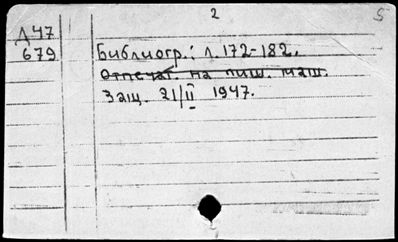 2
5
Д 47
679
Библиогр.: л. 172-182.
Отпечат. на пиш. маш.
Защ. 21/II 1947.